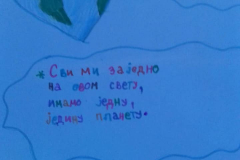 * Сви ми заједно
на овом свету,
имамо једну,
једину планету.